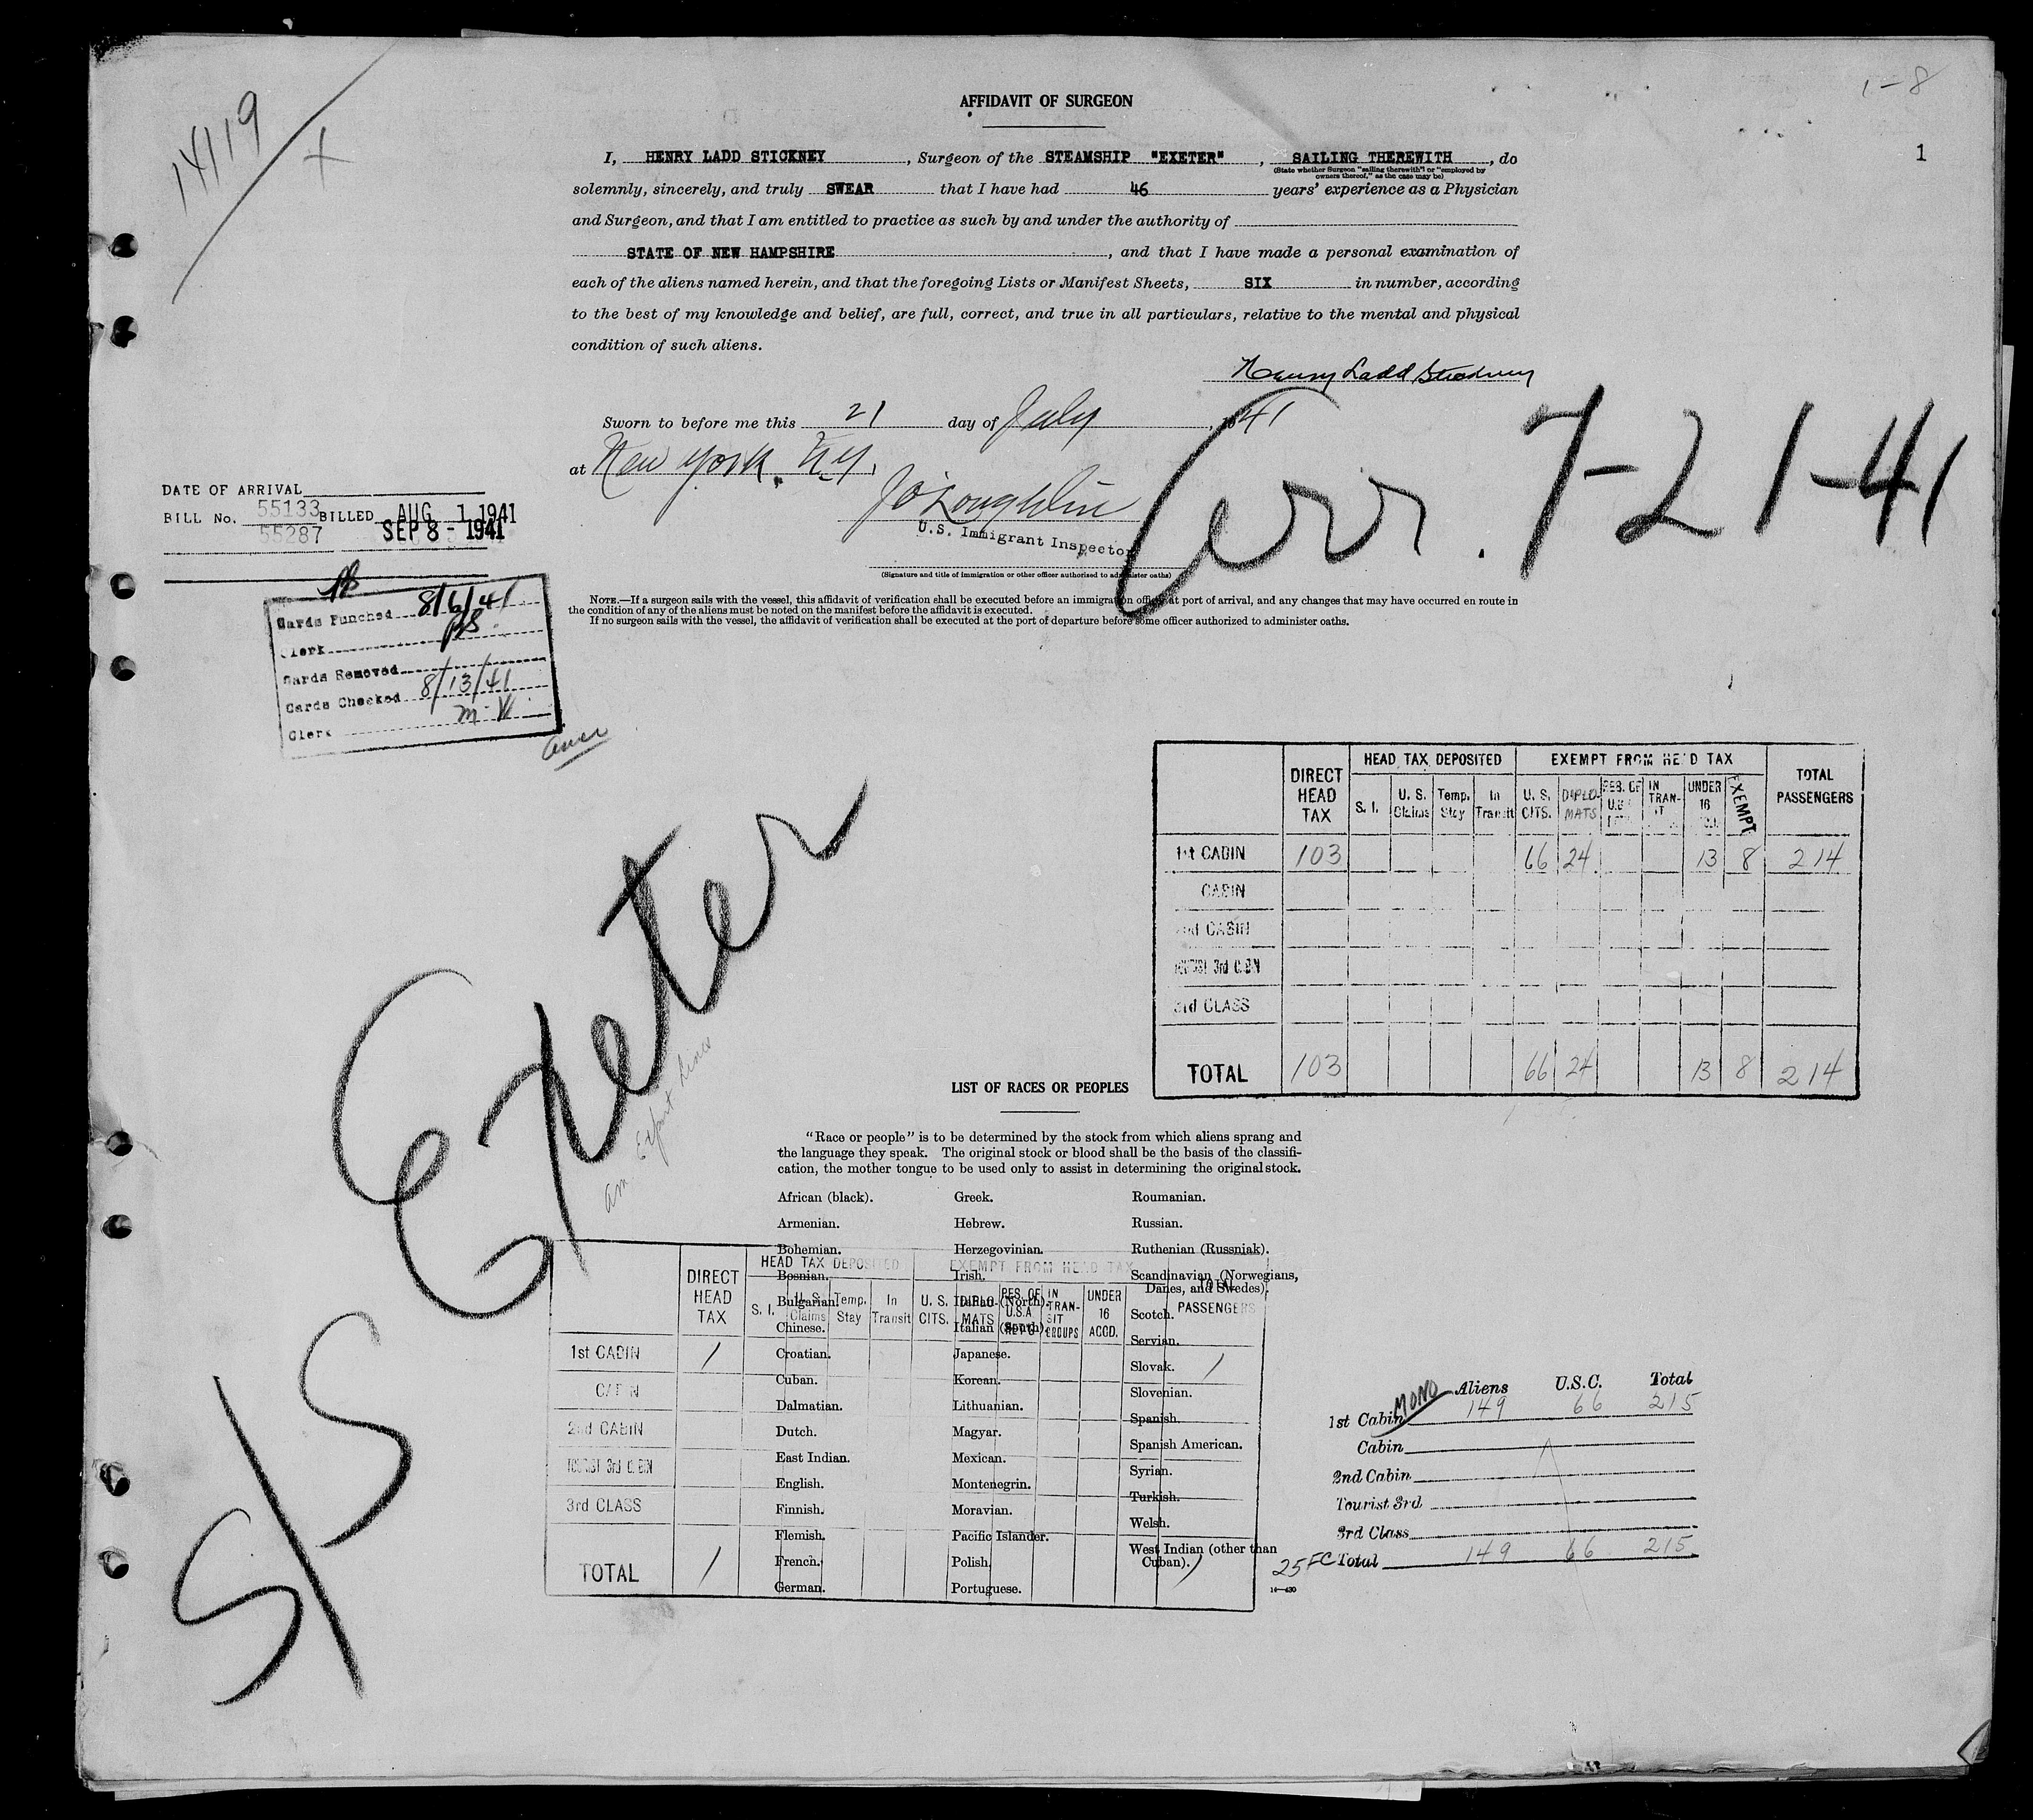 14119
1-8
1
AFFIDAVIT OF SURGEON
I, HENRY LADD STICKNEY, Surgeon of the STEAMSHIP "EXETER", SAILING THEREWITH, do
(State whether Surgeon "sailing therewith" or "employed by
owners thereof," as the case may be)
solemnly, sincerely, and truly SWEAR that I have had 46 years' experience as a Physician
and Surgeon, and that I am entitled to practice as such by and under the authority of
STATE OF NEW HAMPSHIRE, and that I have made a personal examination of
each of the aliens named herein, and that the foregoing Lists or Manifest Sheets, SIX in number, according
to the best of my knowledge and belief, are full, correct, and true in all particulars, relative to the mental and physical
condition of such aliens.
Henry Ladd Stickney
Sworn to before me this 21 day of July, 1941
at New York, N.Y.
J O'Loughlin
U.S. Immigrant Inspector
(Signature and title of immigration or other officer authorized to administer oaths)
Arr. 7-21-41
DATE OF ARRIVAL
BILL No. 55133 BILLED AUG 1 1941
55287 SEP 8 - 1941
Cards Punched 8/6/41
Clerk
Cards Removed
Cards Checked 8/13/41
Clerk M.V.
NOTE.—If a surgeon sails with the vessel, this affidavit of verification shall be executed before an immigration officer at port of arrival, and any changes that may have occurred en route in
the condition of any of the aliens must be noted on the manifest before the affidavit is executed.
If no surgeon sails with the vessel, the affidavit of verification shall be executed at the port of departure before some officer authorized to administer oaths.
DIRECT HEAD TAX HEAD TAX DEPOSITED EXEMPT FROM HEAD TAX TOTAL PASSENGERS
S. I. U. S. Claims Temp. Stay In Transit U. S. CITS. DIPLOMATS RES. OF U.S. IN TRANSIT UNDER 16 EXEMPT
1st CABIN 103 66 24 13 8 214
CABIN
2nd CABIN
TOURIST 3rd CABIN
3rd CLASS
TOTAL 103 66 24 13 8 214
S/S Exeter
Am. Export Lines
LIST OF RACES OR PEOPLES
"Race or people" is to be determined by the stock from which aliens sprang and
the language they speak. The original stock or blood shall be the basis of the classifi-
cation, the mother tongue to be used only to assist in determining the original stock.
African (black).
Armenian.
Bohemian.
Bosnian.
Bulgarian.
Chinese.
Croatian.
Cuban.
Dalmatian.
Dutch.
East Indian.
English.
Finnish.
Flemish.
French.
German.
Greek.
Hebrew.
Herzegovinian.
Irish.
Italian (North).
Italian (South).
Japanese.
Korean.
Lithuanian.
Magyar.
Mexican.
Montenegrin.
Moravian.
Pacific Islander.
Polish.
Portuguese.
Roumanian.
Russian.
Ruthenian (Russniak).
Scandinavian (Norwegians,
Danes, and Swedes).
Scotch.
Servian.
Slovak.
Slovenian.
Spanish.
Spanish American.
Syrian.
Turkish.
Welsh.
West Indian (other than
Cuban).
16—430
DIRECT HEAD TAX HEAD TAX DEPOSITED EXEMPT FROM HEAD TAX TOTAL PASSENGERS
S. I. U. S. Claims Temp. Stay In Transit U. S. CITS. DIPLO-MATS RES. OF U.S.A RET'G IN TRAN-SIT GROUPS UNDER 16 ACCD.
1st CABIN 1 1
CABIN
2nd CABIN
TOURIST 3rd CABIN
3rd CLASS
TOTAL 1 1
MONO Aliens U.S.C. Total
1st Cabin 149 66 215
Cabin
2nd Cabin
Tourist 3rd
3rd Class
25 FC Total 149 66 215